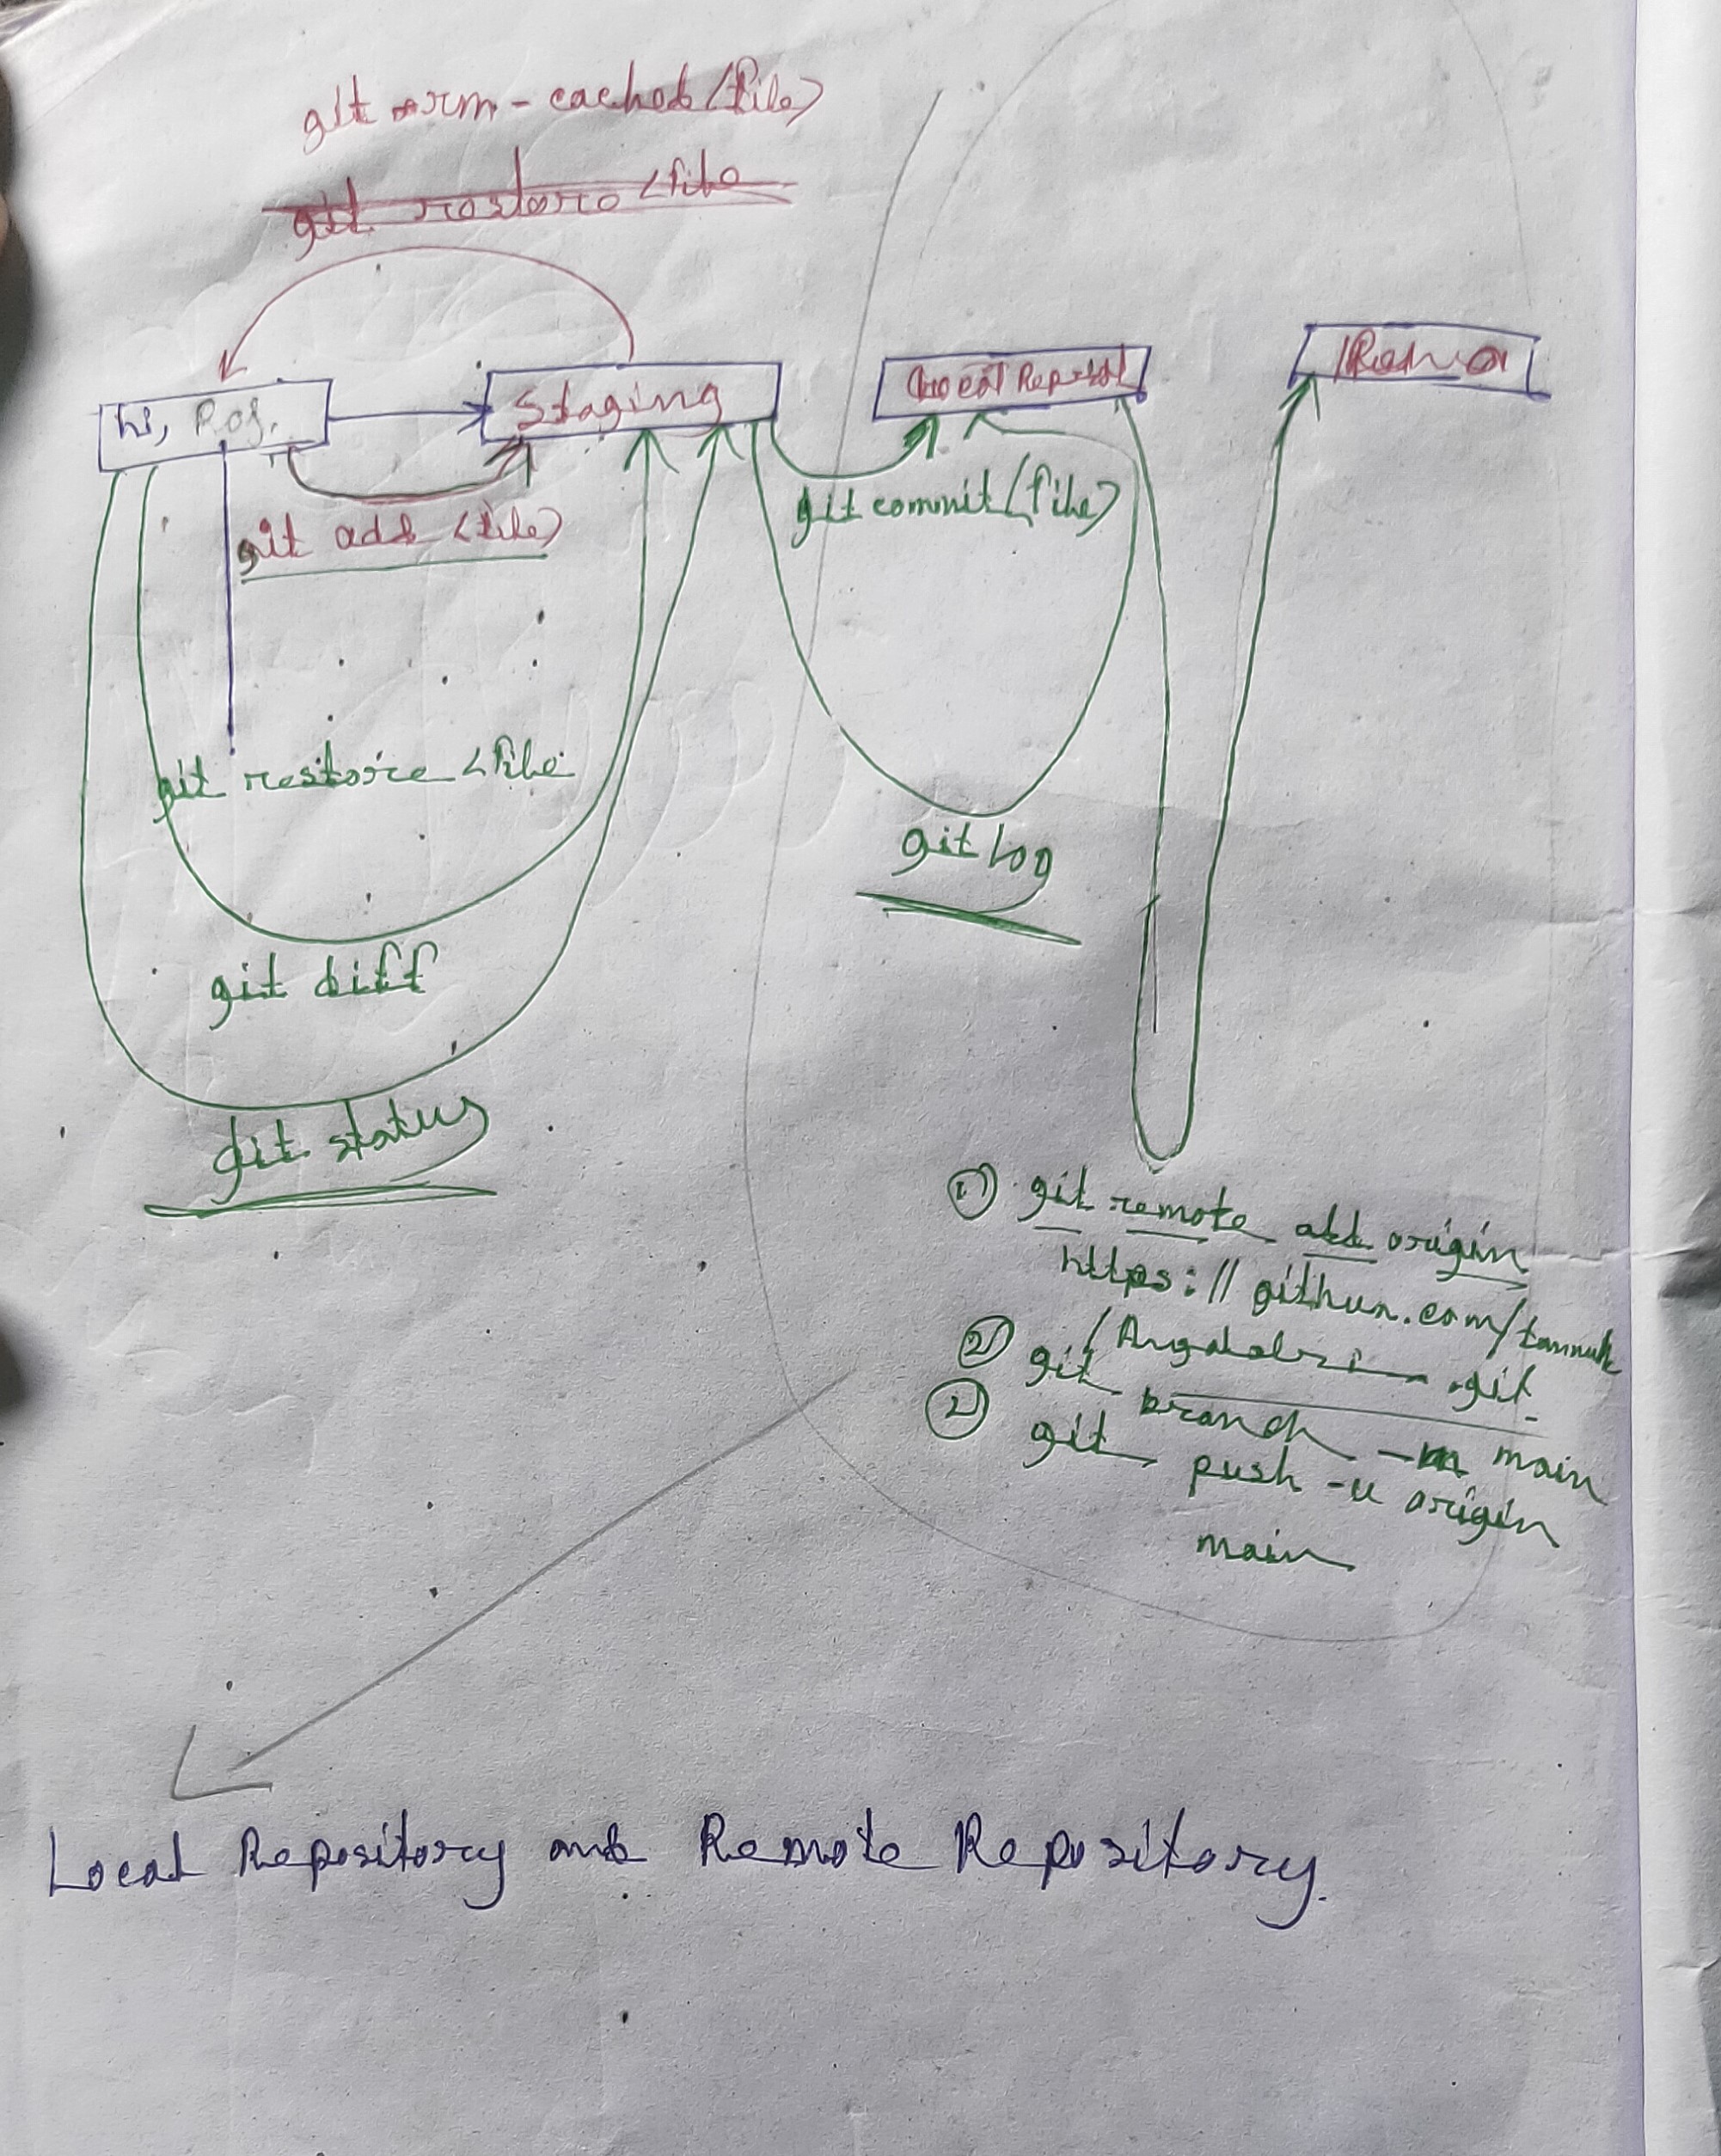 git rm - cached <file>
git restore <file
Staging
Local Reposi
git add <file>
git commit <file>
git restore <file
git log
git diff
git status
① git remote add origin
https://githun.com/tannuk
② git
.git
② git branch -m main
push -u origin
main
Local Repository and Remote Repository.